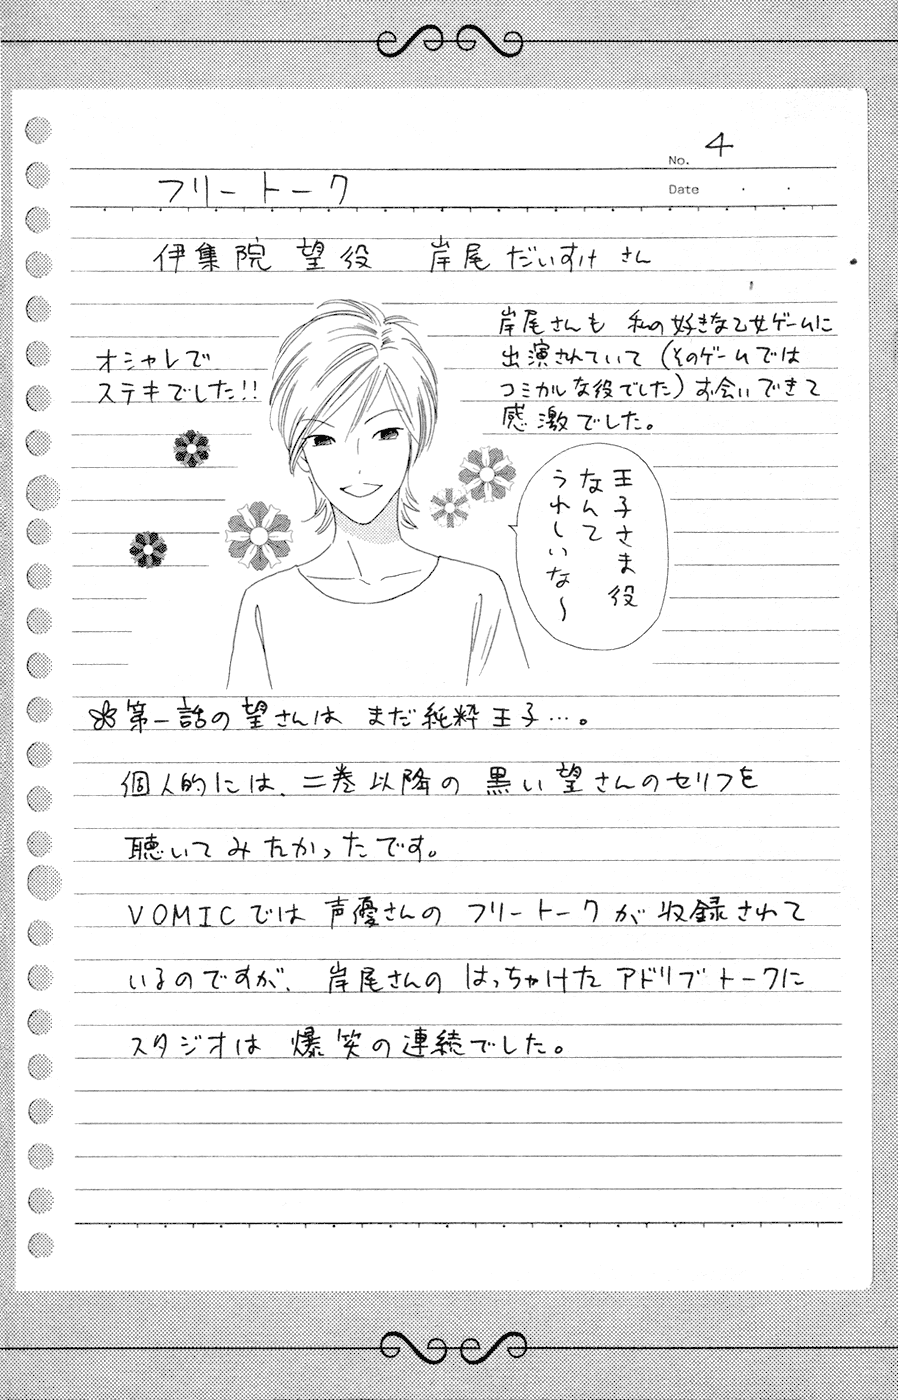 No. 4
フリートーク
Date
伊集院 望役 岸尾だいすけ さん
オシャレで
ステキでした!!
岸尾さんも 私の好きな乙女ゲームに
出演されていて(そのゲームでは
コミカルな役でした)お会いできて
感激でした。
王子さま役
なんて
うれしいな〜
第一話の望さんは まだ純粋王子…。
個人的には、二巻以降の 黒い望さんのセリフを
聴いてみたかったです。
VOMICでは 声優さんの フリートークが収録されて
いるのですが、岸尾さんの はっちゃけた アドリブトークに
スタジオは 爆笑の連続でした。